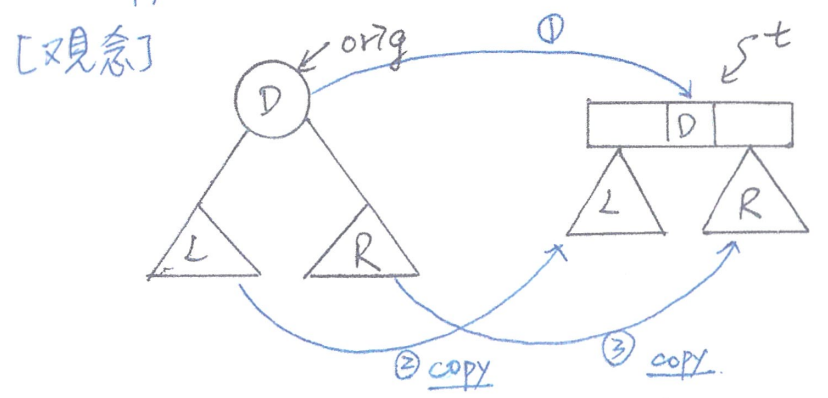 [观念]
orig
①
t
D
D
L
R
L
R
② copy
③ copy.